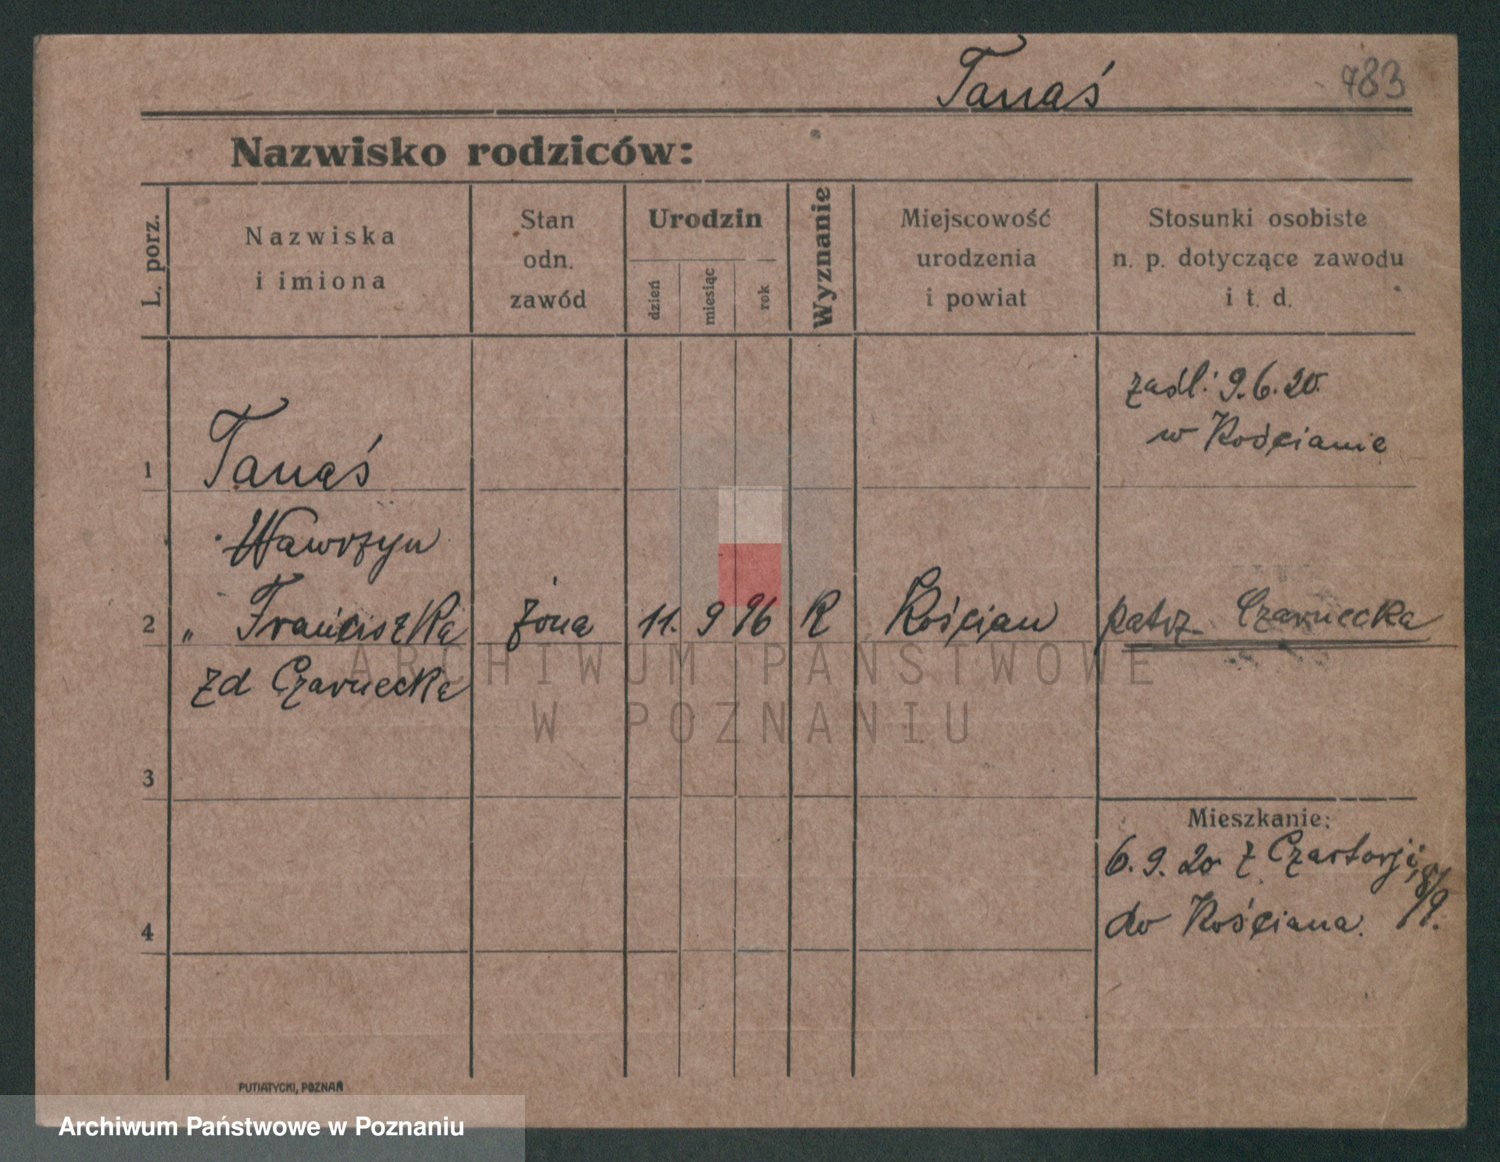 Tanaś 783
Nazwisko rodziców:
L. porz.
Nazwiska
i imiona
Stan
odn.
zawód
Urodzin
dzień
miesiąc
rok
Wyznanie
Miejscowość
urodzenia
i powiat
Stosunki osobiste
n. p. dotyczące zawodu
i t. d.
zaśl: 9.6.20
w Kościanie
1 Tanaś
Wawrzyn
2 " Franciszka żona 11. 9 96 R Kościan patrz Czarnecka
zd Czarnecka
ARCHIWUM PAŃSTWOWE
W POZNANIU
3
Mieszkanie:
6.9.20 z Czartorji
do Kościana. 8/9.
4
PUTIATYCKI, POZNAŃ
Archiwum Państwowe w Poznaniu